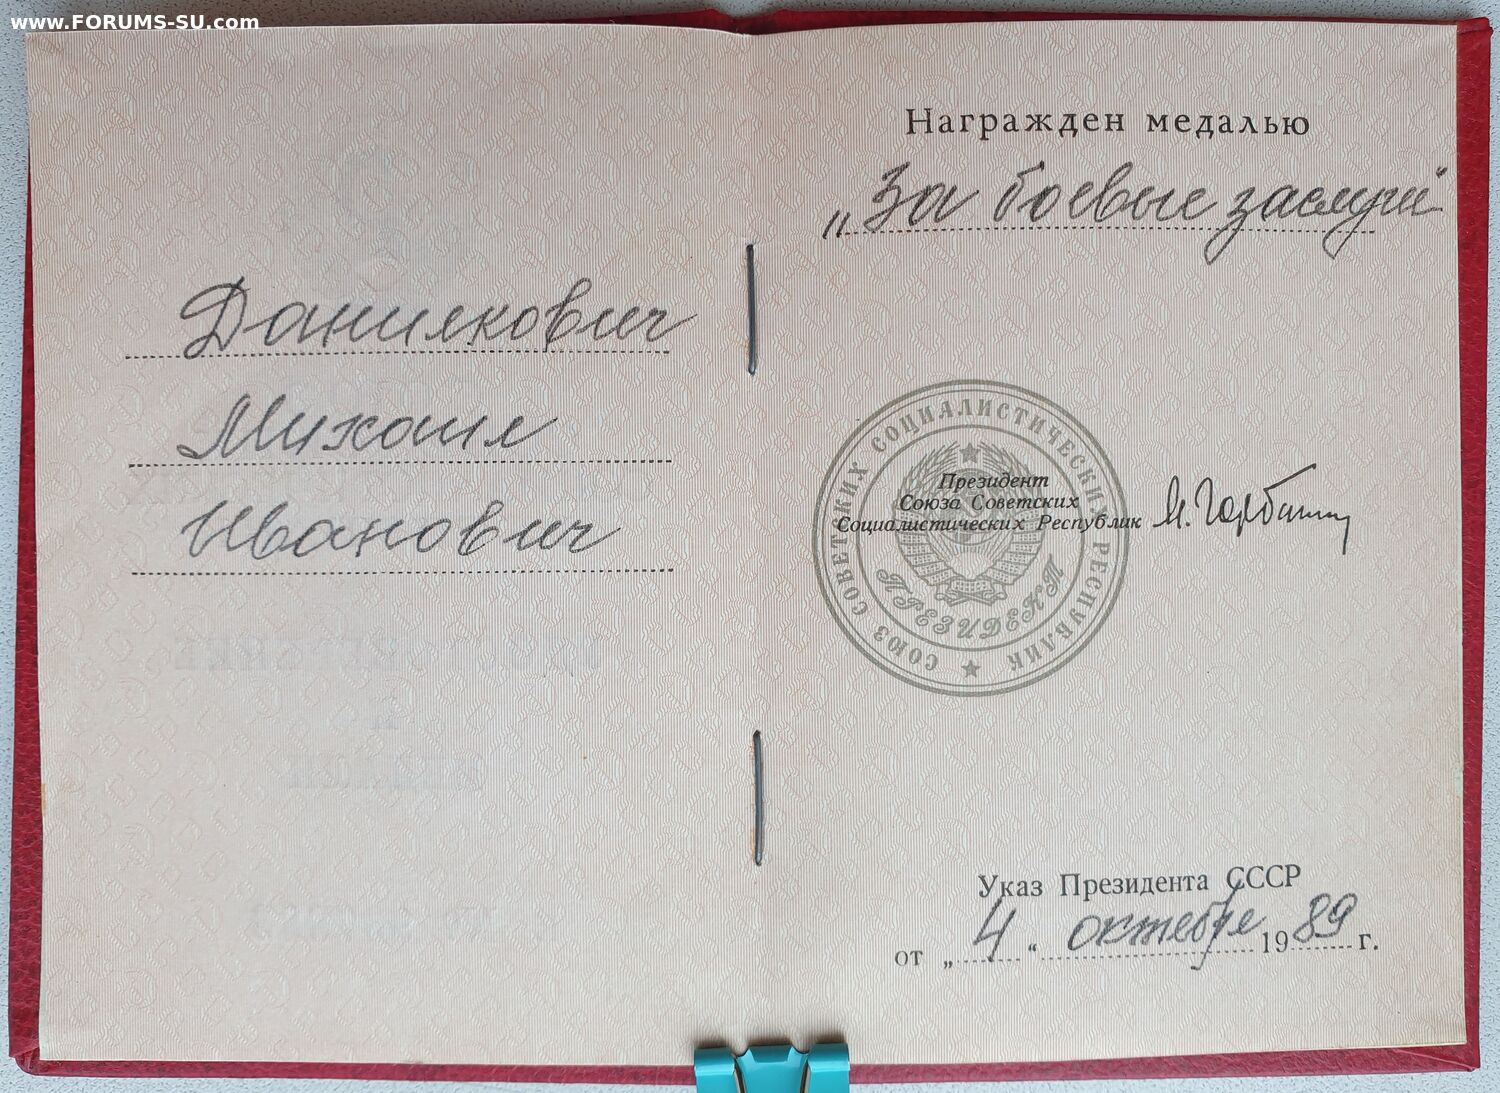 www.FORUMS-SU.com
Данилкович
Михаил
Иванович
Награжден медалью
„За боевые заслуги"
СОЮЗ СОВЕТСКИХ СОЦИАЛИСТИЧЕСКИХ РЕСПУБЛИК
ПРЕЗИДЕНТ
Президент
Союза Советских
Социалистических Республик М. Горбачев
Указ Президента СССР
от „4“ октября 1989 г.